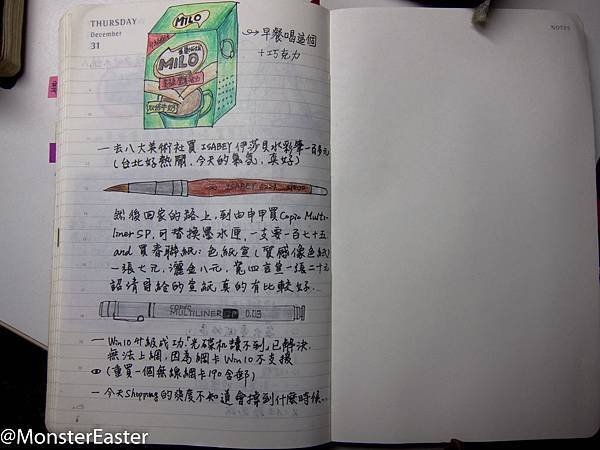 THURSDAY
December
31
NOTES
MILO
MILO
→早餐喝這個
+巧克力
—去八大美術社買 ISABEY 伊莎貝水彩筆一百多元
(台北好熱鬧,今天的氣氛,真好)
ISABEY
然後回家的路上,到由申甲買Copic Multi-
liner SP,可替換墨水匣,一支要一百七十五
and 買春聯紙:色紙宣(質感像色紙)
一張七元,灑金八元,寬四言宣一張二十元
請項目給的宣紙真的有比較好..
COPIC
MULTILINER SP 0.03
—Win10升級成功!「光碟机讀不到」已解決
無法上網,因為網卡Win10不支援
(重買一個無線網卡190含郵)
—今天Shopping的爽度不知道會撐到什麼時候...
@MonsterEaster